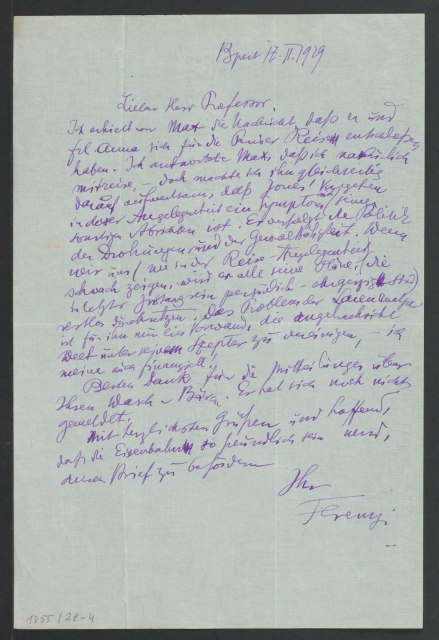 Bpest 17. II. 1929
Lieber Herr Professor.
Ich erhielt von Max die Nachricht, daß er und
Frl Anna sich für die Pariser Reise entschlossen
haben. Ich antwortete Max, daß ich natürlich
mitreise, doch machte ich ihn gleichzeitig
darauf aufmerksam, daß Jones' Vorgehen
in dieser Angelegenheit ein Symptom seiner
sonstigen Absichten ist. Er verfolgt die Politik
der Drohungen und der Gewalttätigkeit. Wenn
wir uns (wie in der Reise-Angelegenheit)
schwach zeigen, wird er alle seine Pläne (die
in letzter persönlich - sind)
restlos durchsetzen. Das Problem der Laienanalyse
ist für ihn nur ein Vorwand, die angelsächsische
Welt unter seinem Szepter zu vereinigen, - ich
meine auch finanziell!
Besten Dank für die Mitteilungen über
Ihren. Er hat sich noch nicht
gemeldet.
Mit herzlichsten Grüßen und hoffend,
daß die Eisenbahn so freundlich sein wird,
diesen Brief zu befördern
Ihr
Ferenczi
1055/28-4